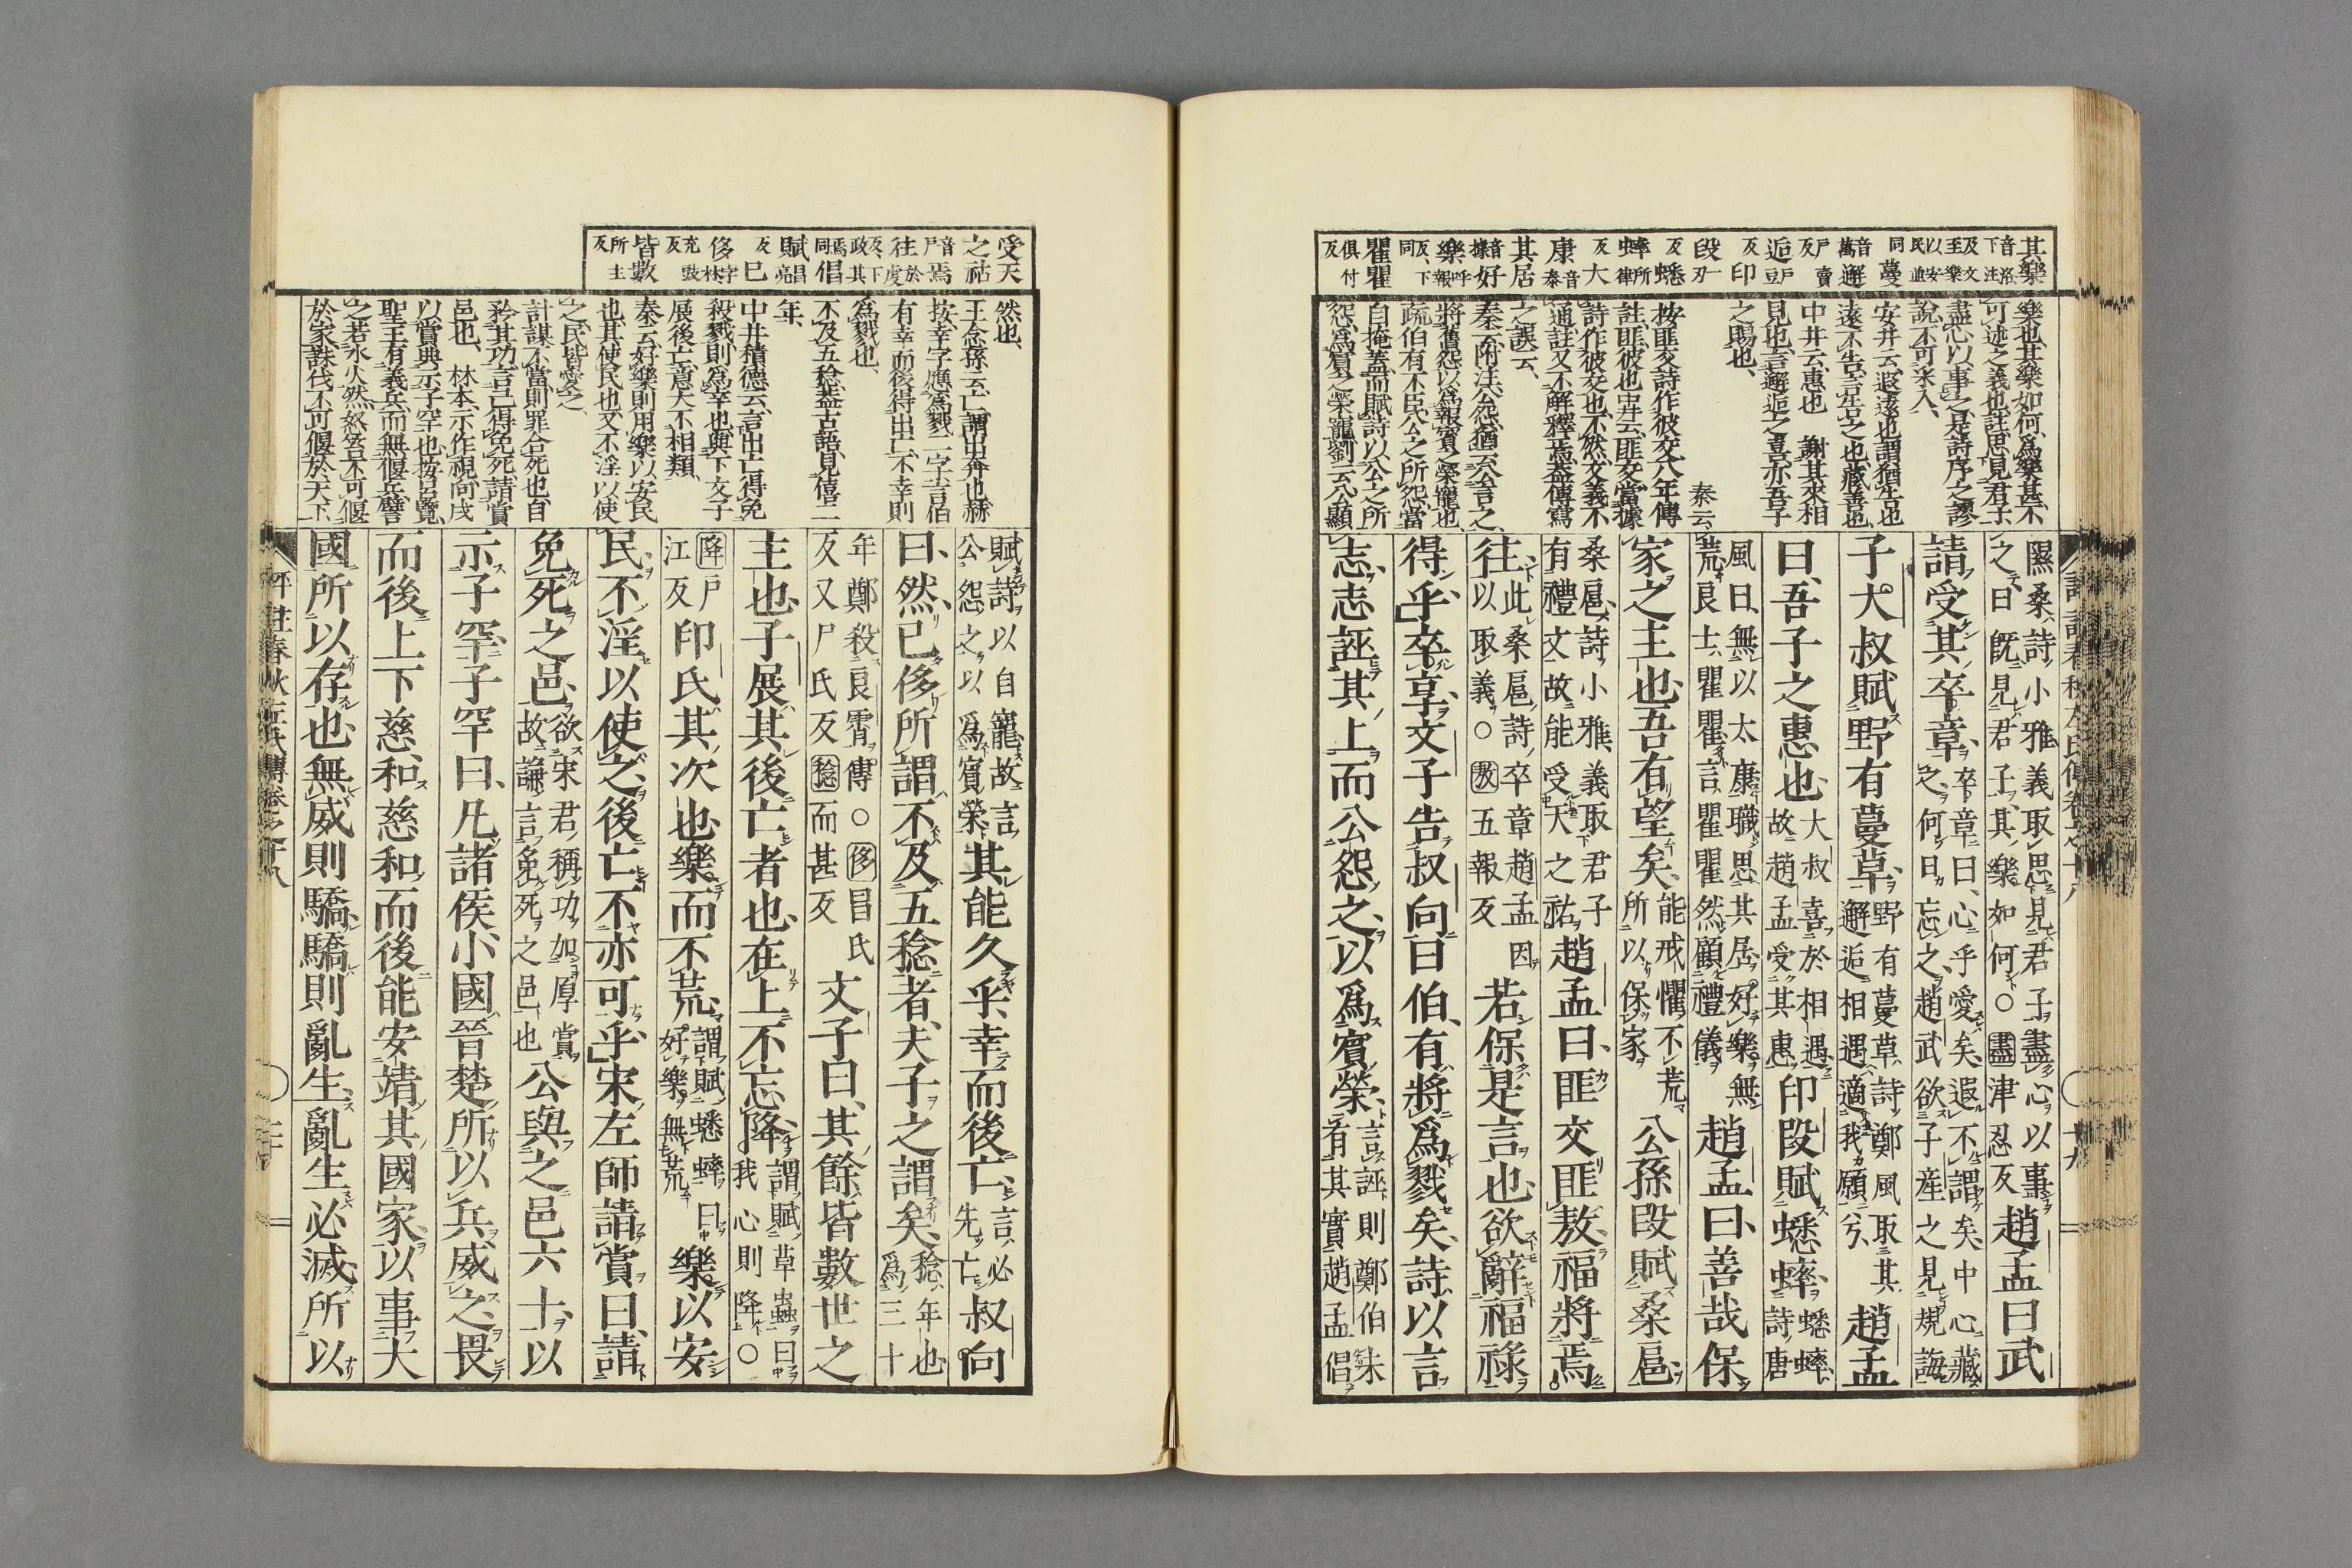 其樂
音洛
下注
及文
至樂
以安
民並
同
蔓
音萬
邂
戶賣
反
逅
戶豆
反
印
段
一刃
反
蟋
蟀
所律
反
大
音泰
康
其居
音據
好
呼報
反下
同
樂
瞿瞿
俱付
反
樂也其樂如何爲樂甚不
可述之義也註思見君子
盡心以事之是詩序之謬
說不可采入
安井云遐遠也謂猶告也
遠不告言告之也藏善也
中井云惠也 謝其來相
見也言邂逅之喜亦吾子
之賜也
秦云
按匪交詩作彼交八年傳
註匪彼也中井云匪交當據
詩作彼交也不然文義不
通註又不解釋焉蓋傳寫
之誤云
秦云附注公怨猶云公言之
將舊怨以爲報賓之榮寵也
疏伯有不臣民公之所怨當
自掩蓋而賦詩以公之所
怨爲賓之榮寵劉云公顯
隰桑詩小雅義取思見君子盡心以事
之曰旣見君子其樂如何○盡津忍反
趙孟曰武
請受其卒章
卒章曰心乎愛矣遐不謂矣中心藏
之何日忘之趙武欲子產之見規誨
子大叔賦野有蔓草
野有蔓草詩鄭風取其
邂逅相遇適我願兮
趙孟
曰吾子之惠也
大叔喜於相遇
故趙孟受其惠
印段賦蟋蟀
蟋蟀
詩唐
風曰無以太康職思其居好樂無
荒良士瞿瞿言瞿瞿然顧禮儀
趙孟曰善哉保
家之主也吾有望矣
能戒懼不荒
所以保家
公孫段賦桑扈
桑扈詩小雅義取君子
有禮文故能受天之祜
趙孟曰匪交匪敖福將焉
往
此桑扈詩卒章趙孟因
以取義○敖五報反
若保是言也欲辭福祿
得乎卒享文子告叔向曰伯有將爲戮矣詩以言
志志誣其上而公怨之以爲賓榮
言誣則鄭伯未
有其實趙孟倡
受天
之祜
音戶
焉
往
於虔
反下
政其
焉同
倡
昌亮
賦
反
已
侈
字林
充豉
反
皆數
所主
反
然也
王念孫云亡謂出奔也赫
按幸字應爲戮二字言伯
有幸而後得出亡不幸則
爲戮也
不及五稔蓋古語見僖二
年
中井積德云言出亡得免
殺戮則爲幸也與下文子
展後亡意大不相類
秦云好樂則用樂以安民
也其使民也又不淫以使
之民皆愛之
計謀不當則罪合死也自
矜其功言已得免死請賞
邑也 林本示作視向戌
以賞典示子罕也按呂覽
聖王有義兵而無偃兵譬
之若水火然怒笞不可偃
於家誅伐不可偃於天下
賦詩以自寵故言
公怨之以爲賓榮
其能久乎幸而後亡
言必
先亡
叔向
曰然已侈所謂不及五稔者夫子之謂矣
稔年也
爲三十
年鄭殺良霄傳○侈昌氏
反又尸氏反稔而甚反
文子曰其餘皆數世之
主也子展其後亡者也在上不忘降
謂賦草蟲曰
我心則降○
降戶
江反
印氏其次也樂而不荒
謂賦蟋蟀曰
好樂無荒
樂以安
民不淫以使之後亡不亦可乎宋左師請賞曰請
免死之邑
欲宋君稱功加厚賞
故謙言免死之邑也
公與之邑六十以
示子罕子罕曰凡諸侯小國晉楚所以兵威之畏
而後上下慈和慈和而後能安靖其國家以事大
國所以存也無威則驕驕則亂生亂生必滅所以